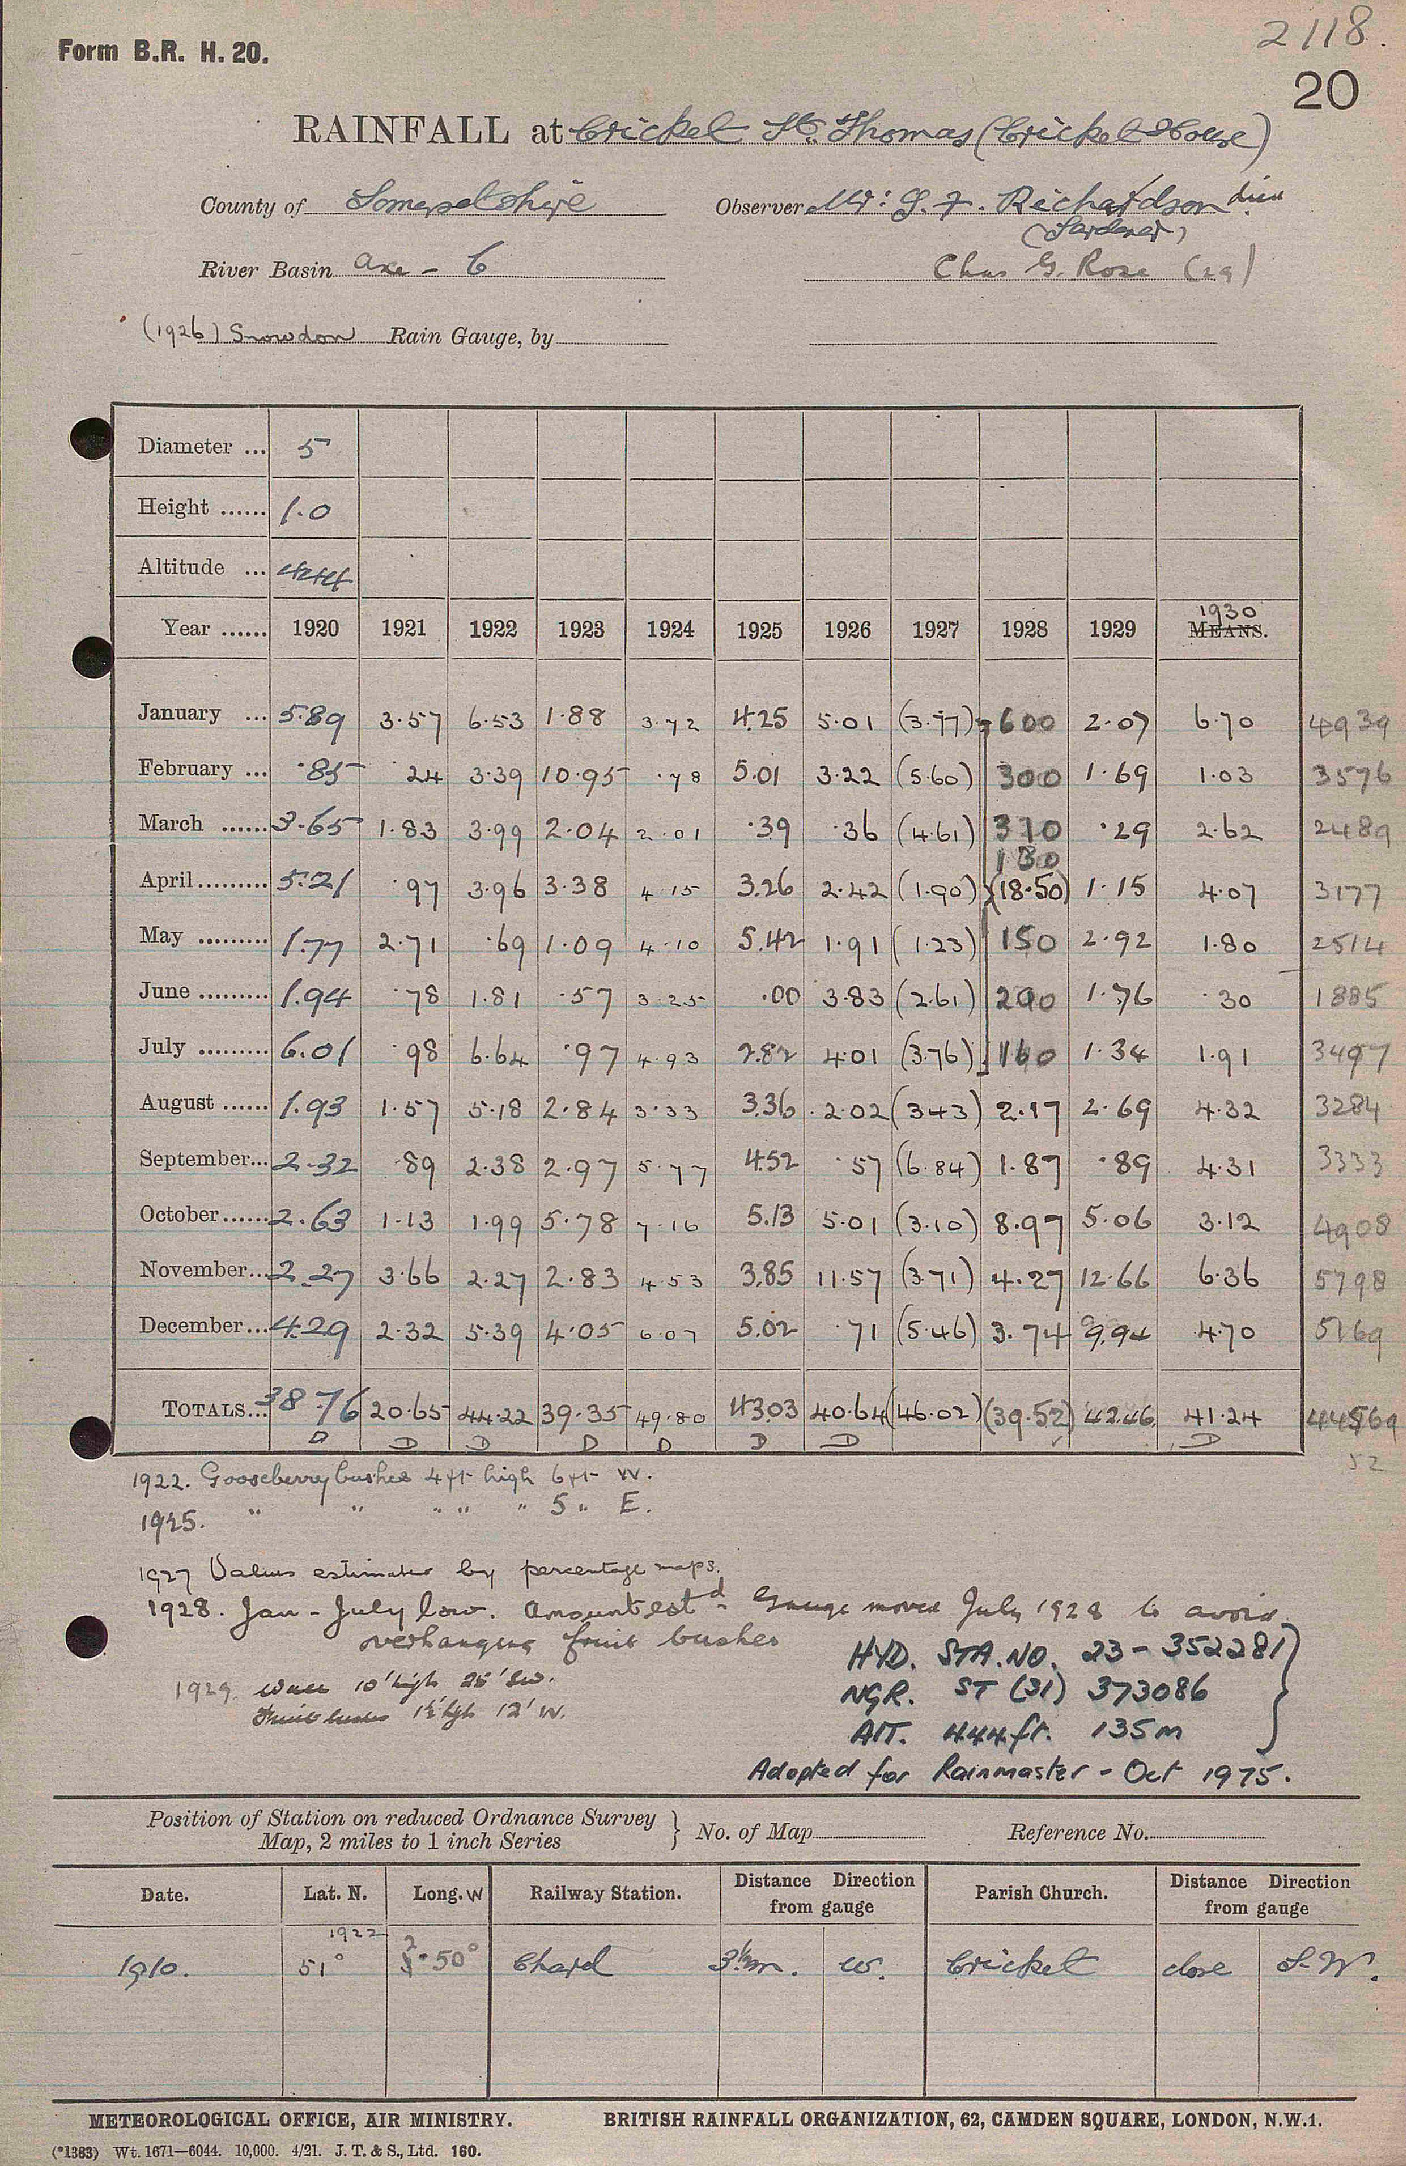 2118.
Form B.R. H. 20.
20
RAINFALL at Cricket St. Thomas (Cricket House)
County of Somersetshire Observer Mr. G. F. Richardson died
(Gardener)
River Basin Axe - 6 Chas G. Rose (29)
(1926) Snowdon Rain Gauge, by
Diameter ... 5
Height ...... 1.0
Altitude ... 444
1930
Year ...... 1920 1921 1922 1923 1924 1925 1926 1927 1928 1929 MEANS.
January ... 5.89 3.57 6.53 1.88 3.72 4.25 5.01 (3.77) 600 2.07 6.70 4939
February ... .85 .24 3.39 10.95 .78 5.01 3.22 (5.60) 300 1.69 1.03 3576
March ...... 3.65 1.83 3.99 2.04 2.01 .39 .36 (4.61) 310 .29 2.62 2489
130
April ......... 5.21 .97 3.96 3.38 4.15 3.26 2.42 (1.90) (18.50) 1.15 4.07 3177
May ......... 1.77 2.71 .69 1.09 4.10 5.42 1.91 (1.23) 150 2.92 1.80 2514
June ......... 1.94 .78 1.81 .57 3.25 .00 3.83 (2.61) 200 1.76 .30 1885
July ......... 6.01 .98 6.64 .97 4.93 2.82 4.01 (3.76) 160 1.34 1.91 3497
August ...... 1.93 1.57 5.18 2.84 3.33 3.36 2.02 (3.43) 2.17 2.69 4.32 3284
September... 2.32 .89 2.38 2.97 5.77 4.52 .57 (6.84) 1.87 .89 4.31 3333
October...... 2.63 1.13 1.99 5.78 7.16 5.13 5.01 (3.10) 8.97 5.06 3.12 4908
November... 2.27 3.66 2.27 2.83 4.53 3.85 11.57 (3.71) 4.27 12.66 6.36 5798
December... 4.29 2.32 5.39 4.05 6.07 5.02 .71 (5.46) 3.74 9.94 4.70 5169
TOTALS... 38.76 20.65 44.22 39.35 49.80 43.03 40.64 (46.02) (39.52) 42.46 41.24 44569
D D D D D D D D
52
1922. Gooseberry bushes 4 ft high 6 ft W.
1925. " " " " " 5 " E.
1927 Values estimated by percentage maps.
1928. Jan - July low. Amount estd - Gauge moved July 1928 to avoid
overhanging fruit bushes
1929. Wall 10' high 25' SW.
Fruit bushes 1½' high 12' W.
HYD. STA. NO. 23 - 352281
NGR. ST (31) 373086
AIT. 444 ft. 135m
Adopted for Rainmaster - Oct 1975.
Position of Station on reduced Ordnance Survey
Map, 2 miles to 1 inch Series } No. of Map Reference No.
Date. Lat. N. Long. W Railway Station. Distance Direction from gauge Parish Church. Distance Direction from gauge
1922
1910. 51° 2.50° Chard 3½m. W. Cricket close S.W.
METEOROLOGICAL OFFICE, AIR MINISTRY. BRITISH RAINFALL ORGANIZATION, 62, CAMDEN SQUARE, LONDON, N.W.1.
(*1383) Wt. 1671—6044. 10,000. 4/21. J. T. & S., Ltd. 160.